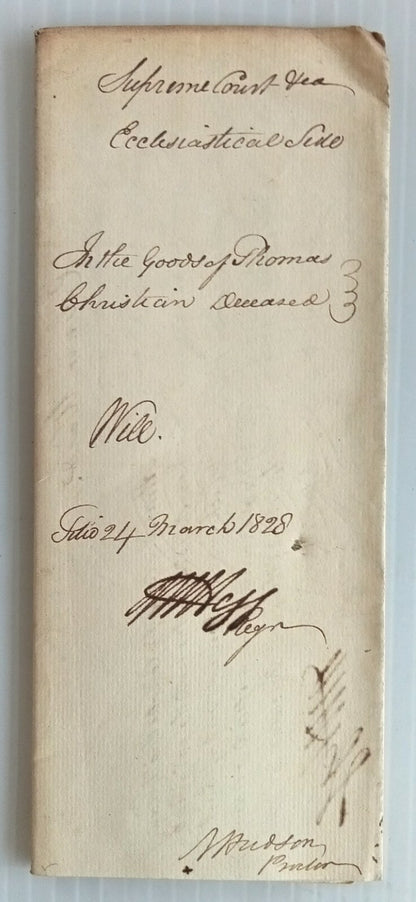 Supreme Court &ca
Ecclesiastical Side
In the Goods of Thomas
Christian Deceased
Will.
24 March 1828
Regr
Hudson
Proctor